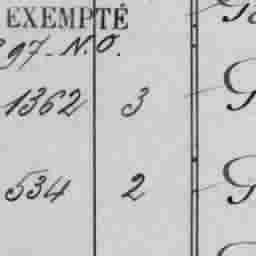 EXEMPTÉ
97 - N.O.
1362 3
534 2